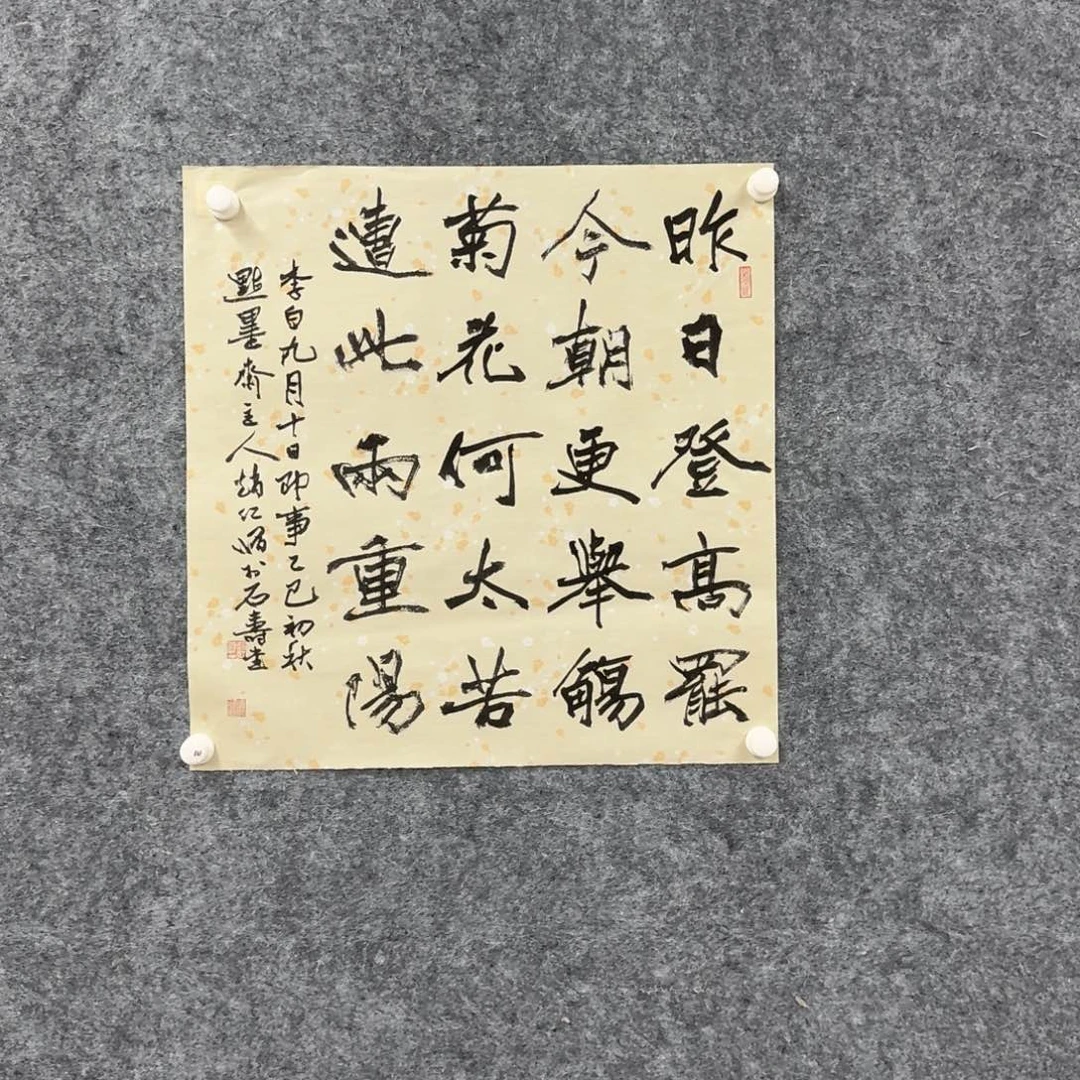 昨日登高罷
今朝更舉觴
菊花何太苦
遭此兩重陽
李白九月十日即事乙巳初秋
點墨齋主人趙仁 書於石壽堂